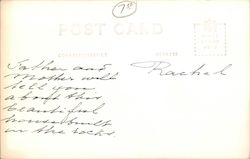 7.50
POST CARD
CORRESPONDENCE ADDRESS
Father and
Mother will
tell you
about this
beautiful
house built
in the rocks.
Rachel